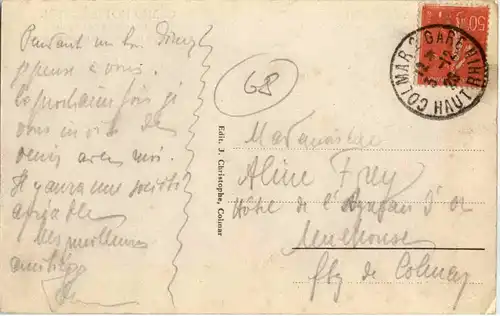 Pendant un bon
je pense à vous.
La prochaine fois je
vous invite de
venir avec moi.
Il y aura une société
agréable
Mes meilleures
amitiés
68
Edit. J. Christophe, Colmar
Mademoiselle
Aline Frey
Hôtel de l'Agneau d'or
fbg de Colmar
50
COLMAR 2 GARE HAUT-RHIN